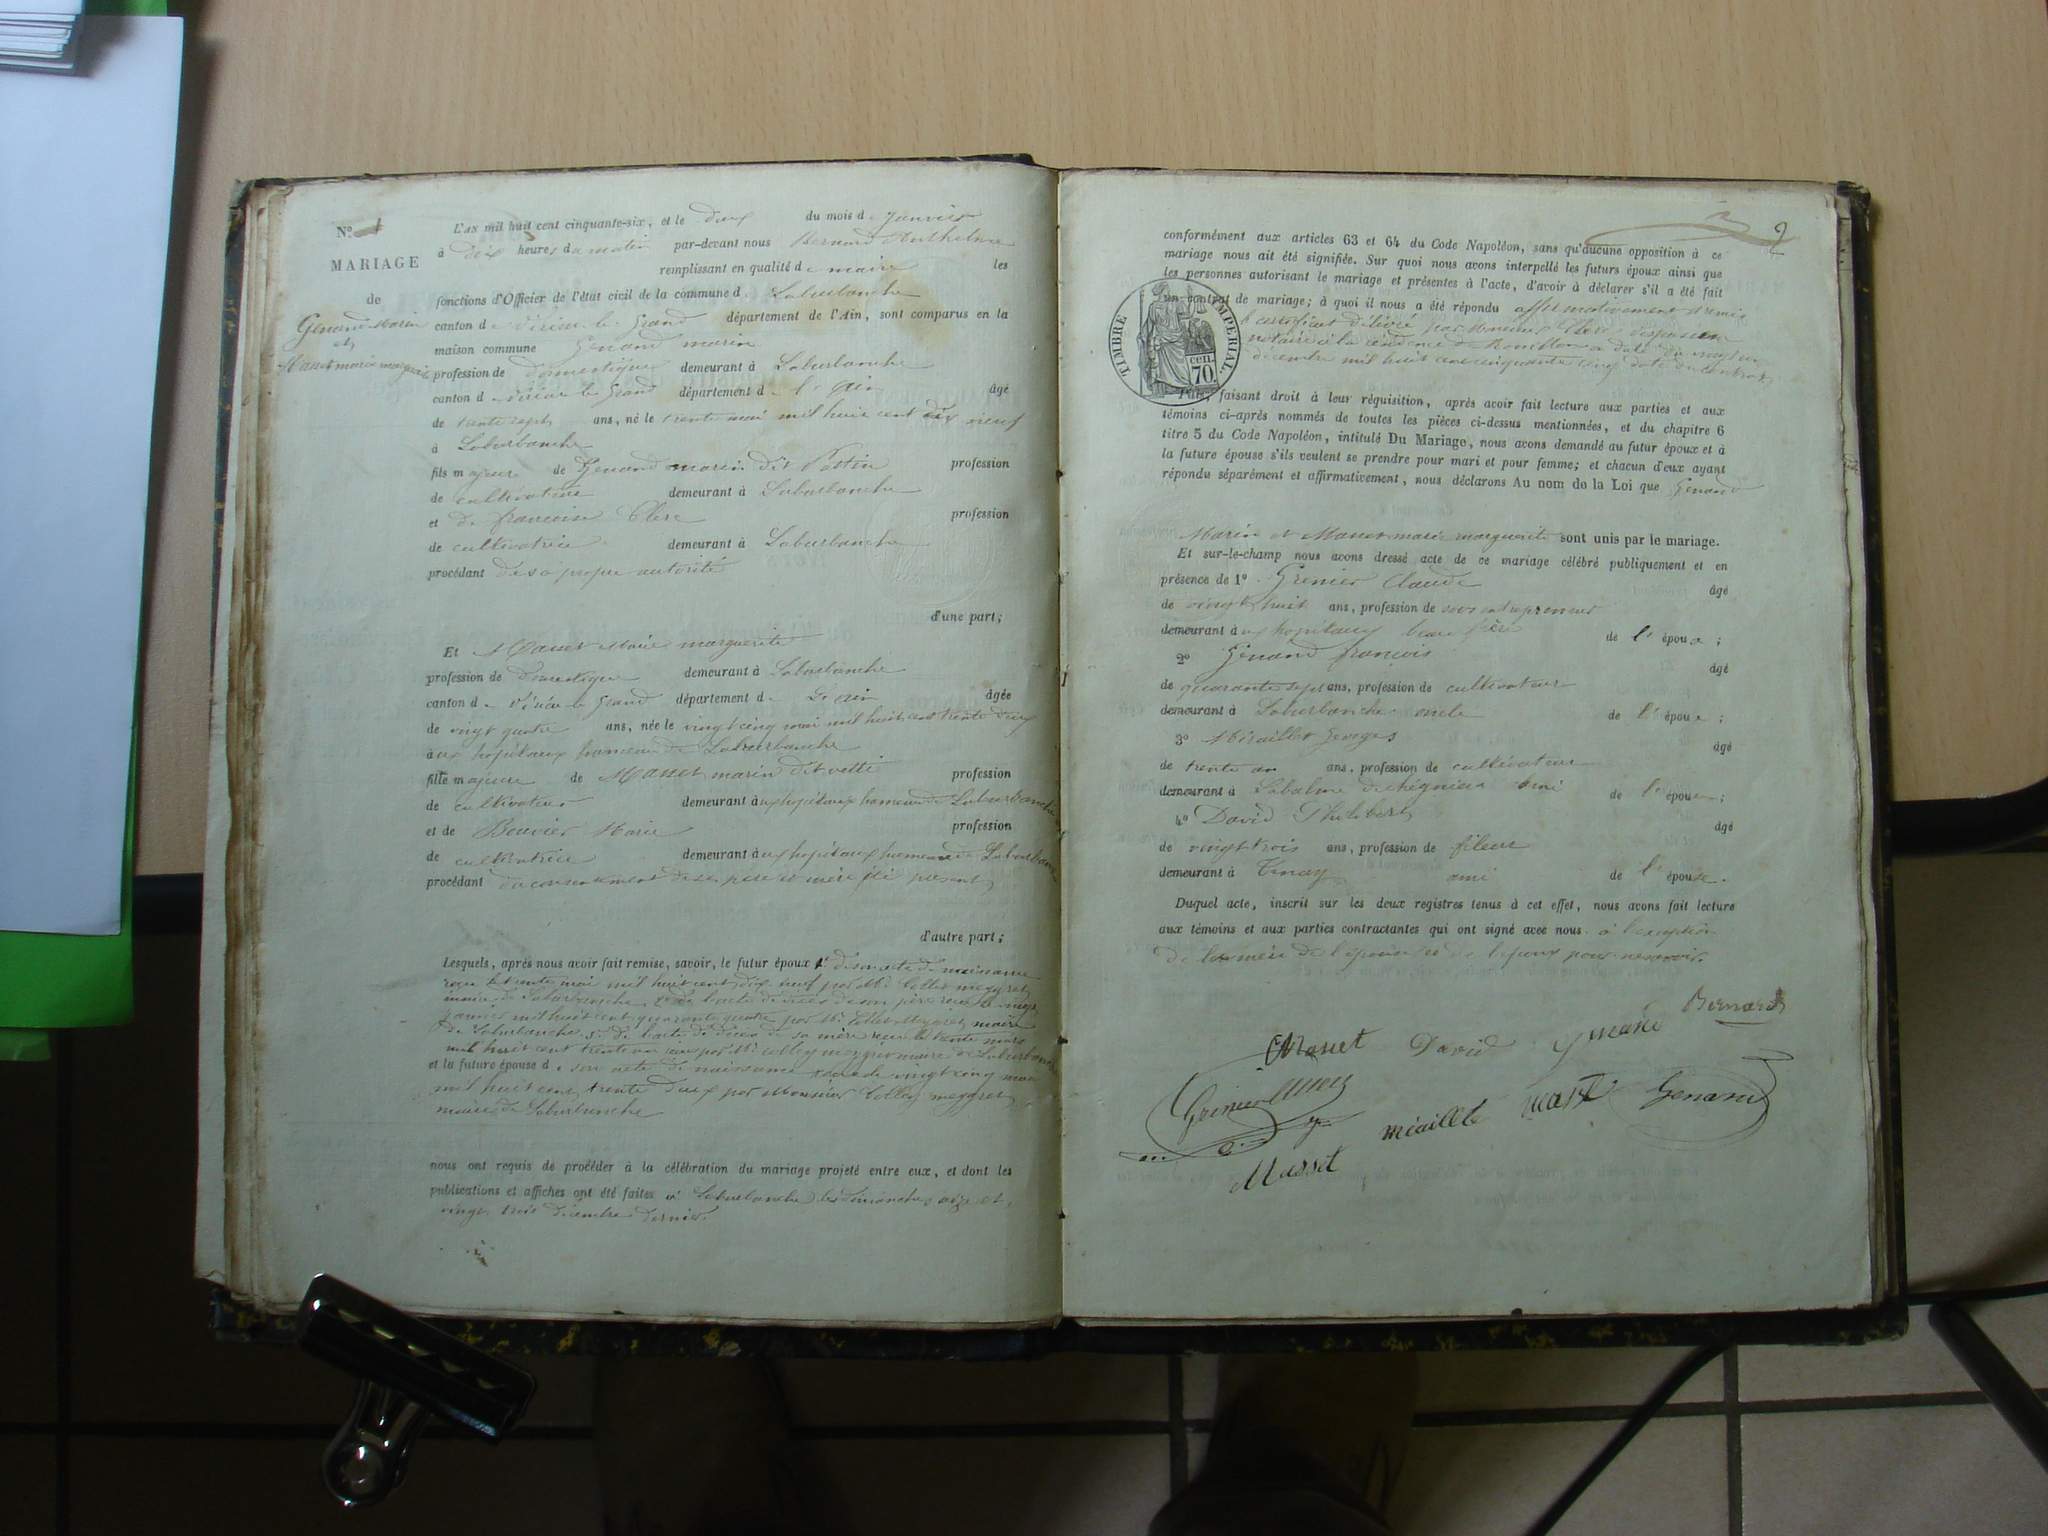 N° 1
MARIAGE
de
Genand Marin
et
Masset marie marguerite
L'AN mil huit cent cinquante-six, et le deux du mois de Janvier
à dix heures du matin par-devant nous Bernard Anthelme
remplissant en qualité de maire les
fonctions d'Officier de l'état civil de la commune d Laburbanche
canton de Virieu le Grand département de l'Ain, sont comparus en la
maison commune Genand marin
profession de domestique demeurant à Laburbanche
canton de Virieu le Grand département de l'ain âgé
de trente sept ans, né le trente mai mil huit cent dix neuf
à Laburbanche
fils majeur de Genand marin dit profession
de cultivateur demeurant à Laburbanche
et de francoise Clerc profession
de cultivatrice demeurant à Laburbanche
procédant de sa propre autorité
d'une part;
Et Masset Marie marguerite
profession de domestique demeurant à Laburbanche
canton de Virieu le Grand département de L'ain âgée
de vingt quatre ans, née le vingt cinq mai mil huit cent trente deux
aux hopitaux hameau de Laburbanche
fille majeure de Masset marin dit velti profession
de cultivateur demeurant aux hopitaux hameau de Laburbanche
et de Bouvier Marie profession
de cultivatrice demeurant aux hopitaux hameau de Laburbanche
procédant du consentement de ses pere et mère ici present
d'autre part;
Lesquels, après nous avoir fait remise, savoir, le futur époux 1° de son acte de naissance
reçu le trente mai mil huit cent dix neuf par Mr Collet meygret
maire de Laburbanche 2° de l'acte de décès de son père reçu le vingt
janvier mil huit cent quarante quatre par Mr Collet Meygret maire
de Laburbanche 3° de l'acte de décès de sa mère reçu le trente mars
mil huit cent trente un par Mr collet meygret maire de Laburbanche
et la future épouse de son acte de naissance reçu le vingt cinq mai
mil huit cent trente deux par Monsieur Collet meygret
maire de Laburbanche
nous ont requis de procéder à la célébration du mariage projeté entre eux, et dont les
publications et affiches ont été faites à Laburbanche les dimanches seize et
vingt trois décembre dernier.
2
conformément aux articles 63 et 64 du Code Napoléon, sans qu'aucune opposition à ce
mariage nous ait été signifiée. Sur quoi nous avons interpellé les futurs époux ainsi que
les personnes autorisant le mariage et présentes à l'acte, d'avoir à déclarer s'il a été fait
un contrat de mariage; à quoi il nous a été répondu affirmativement et remis
le certificat délivré par Monsieur Clerc
notaire à la résidence de Rossillon a date du vingt
décembre mil huit cent cinquante cinq date du contrat
TIMBRE IMPERIAL.
70 cen.
Puis, faisant droit à leur réquisition, après avoir fait lecture aux parties et aux
témoins ci-après nommés de toutes les pièces ci-dessus mentionnées, et du chapitre 6
titre 5 du Code Napoléon, intitulé Du Mariage, nous avons demandé au futur époux et à
la future épouse s'ils veulent se prendre pour mari et pour femme; et chacun d'eux ayant
répondu séparément et affirmativement, nous déclarons Au nom de la Loi que Genand
Marin et Masset marie marguerite sont unis par le mariage.
Et sur-le-champ nous avons dressé acte de ce mariage célébré publiquement et en
présence de 1° Grenier Claude âgé
de vingt huit ans, profession de sous entrepreneur
demeurant aux hopitaux beau frère de l'époux;
2° Genand francois âgé
de quarante sept ans, profession de cultivateur
demeurant à Laburbanche oncle de l'époux;
3° Miraillet Georges âgé
de trente un ans, profession de cultivateur
demeurant à Labalme ami de l'époux;
4° David Philibert âgé
de vingt trois ans, profession de fileur
demeurant à Tenay ami de l'épouse.
Duquel acte, inscrit sur les deux registres tenus à cet effet, nous avons fait lecture
aux témoins et aux parties contractantes qui ont signé avec nous à l'exception
de la mère de l'épouse et de l'epoux pour ne savoir
Bernard
Masset David Genand
Grenier miaillet Genand
Masset